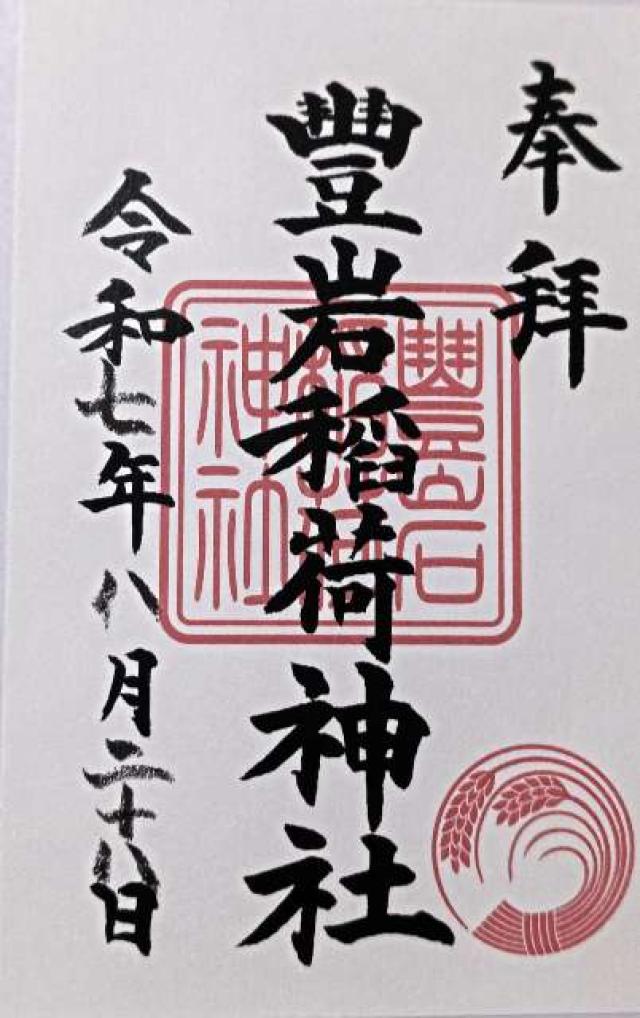 奉拝
豐岩稻荷神社
令和七年八月二十八日
豐岩
稻荷
神社